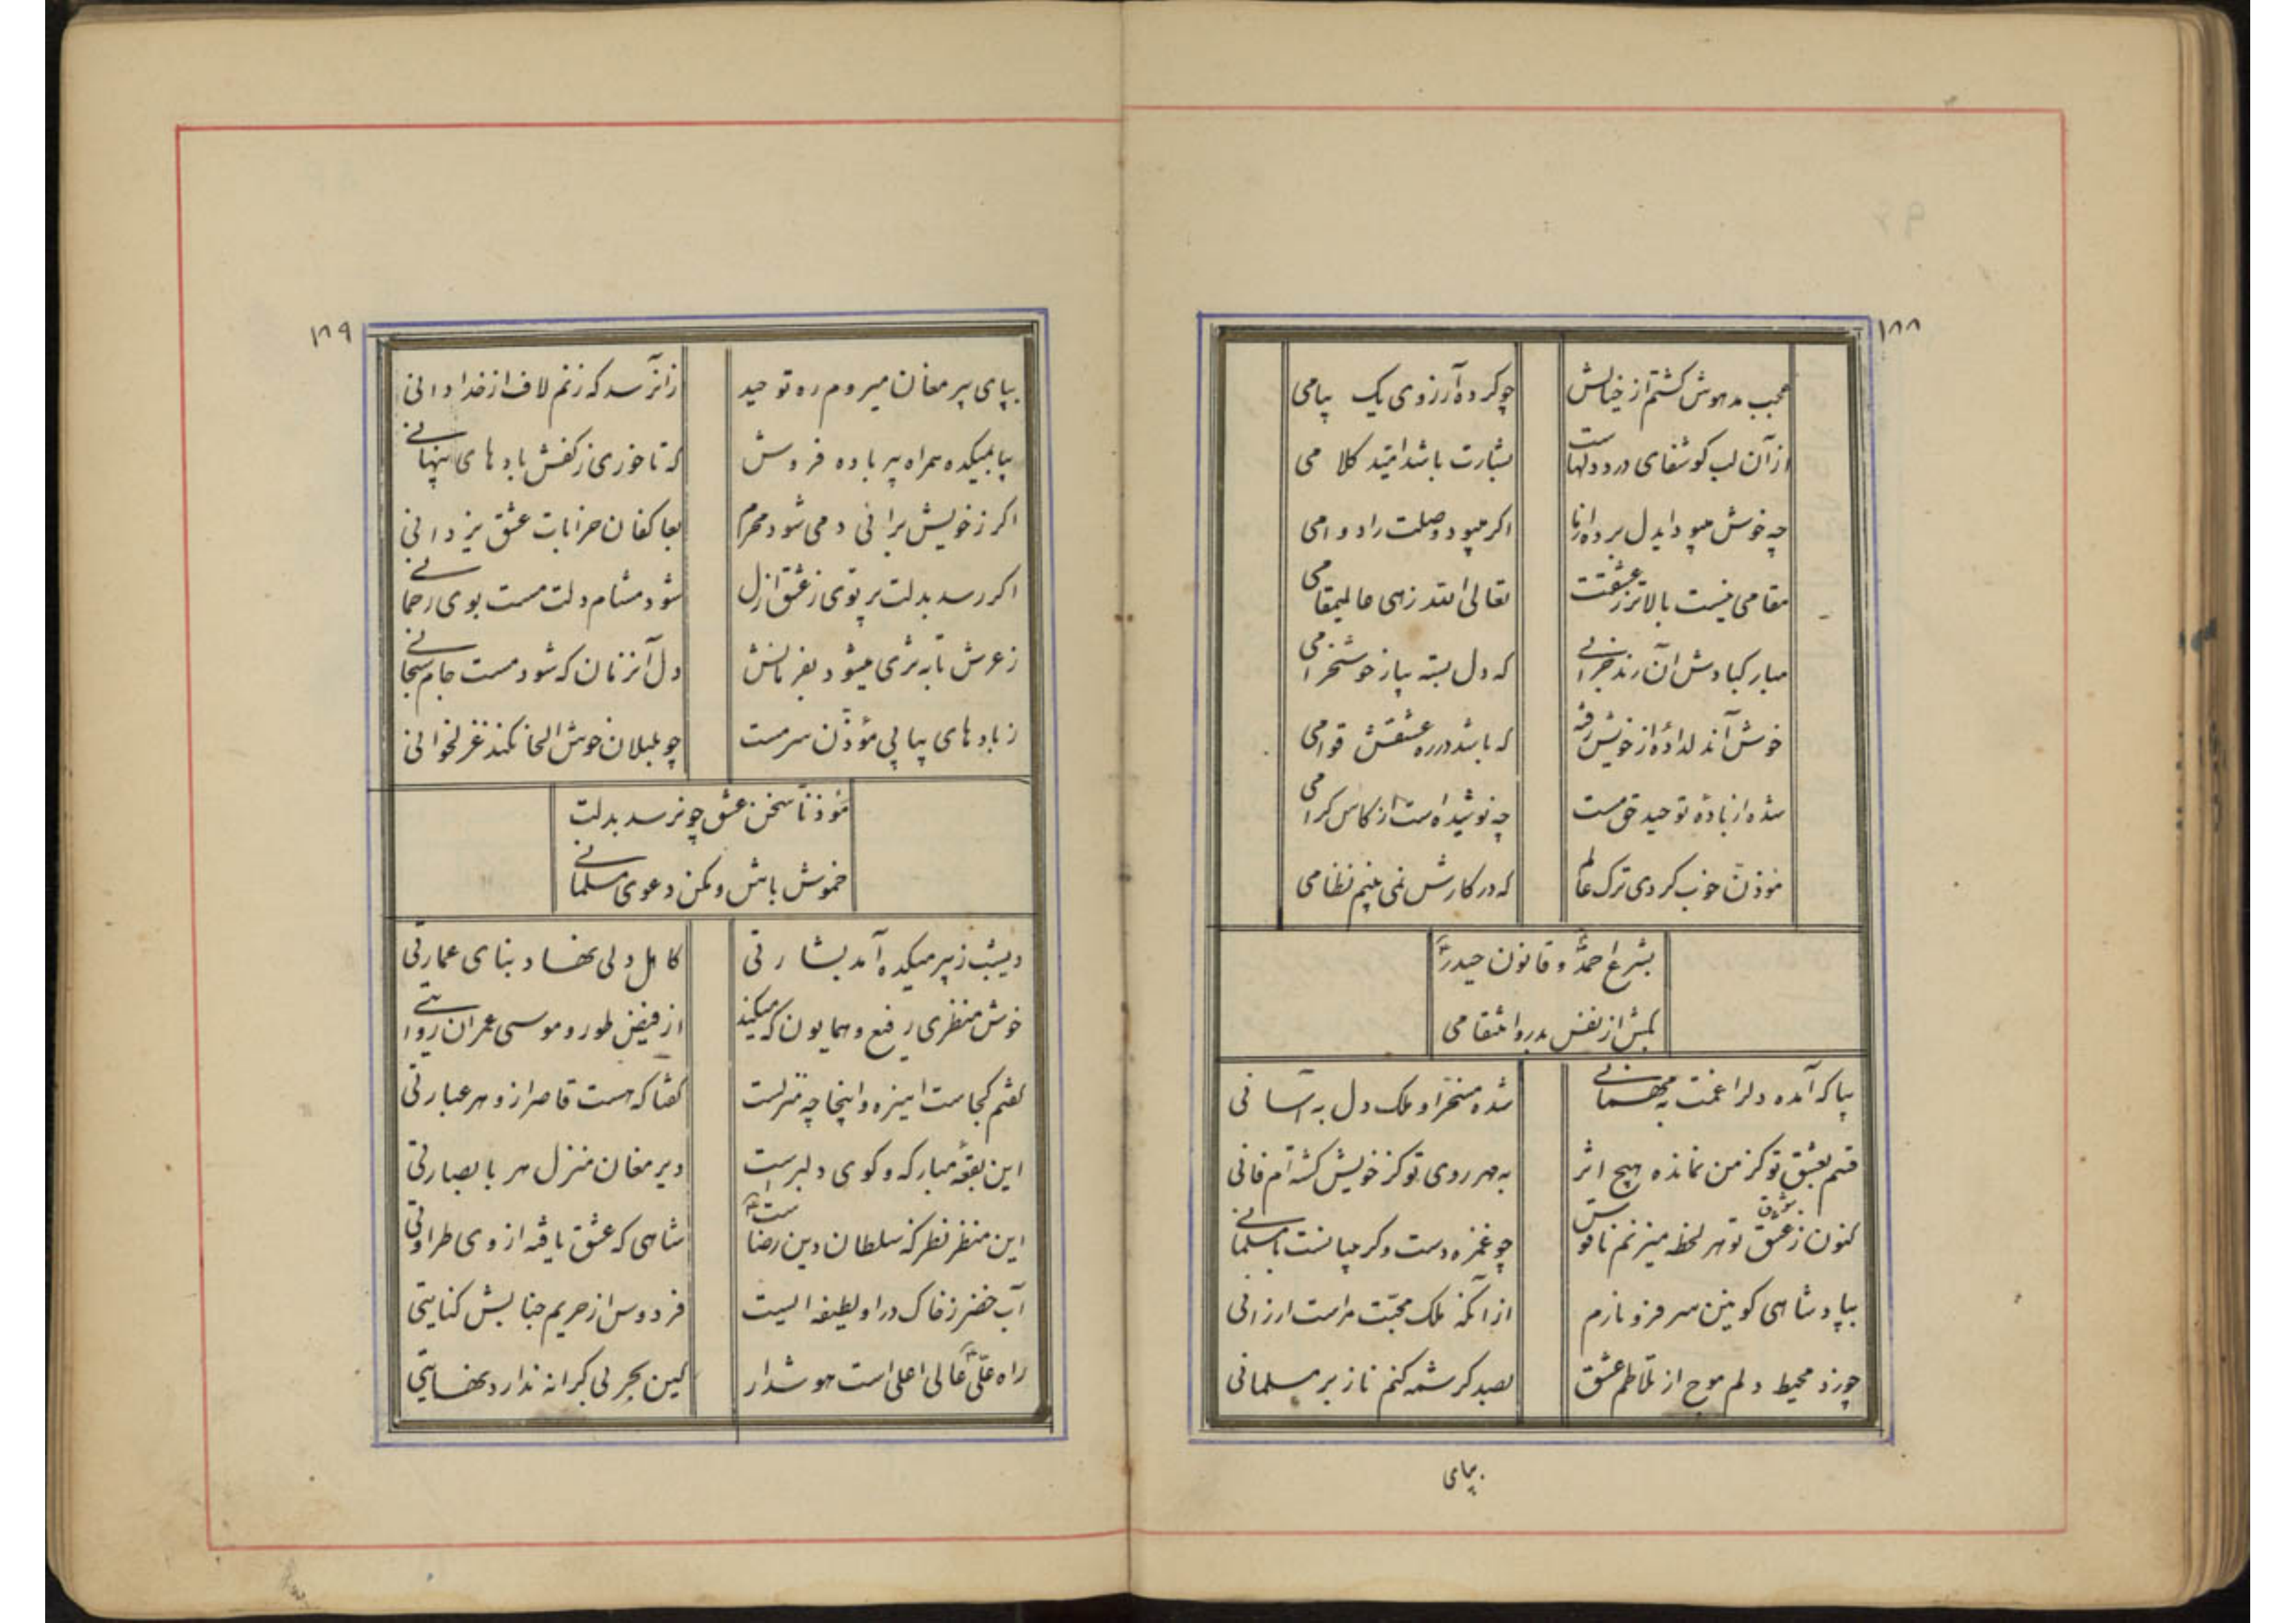 ۱۸۸
عجب مدهوش گشتم از خیالش چو کرده آرزوی یک پیامی
از آن لب کو شفای درد دلهاست بشارت باشد امید کلامی
چه خوش میبود ایدل بر دوام اگر میبود وصلت را دوامی
مقامی نیست بالاتر ز عشقت تعالی الله زهی عالیمقامی
مبارکبادش آن رند خراباتی که دل بسته بیار خوشخرامی
خوش آندلدادهٔ از خویش رفته که باشد در ره عشقش قوامی
شده از بادهٔ توحید حق مست چه نوشیده است از کاس کرامی
مؤذن خوب کردی ترک عالم که در کارش نمی بینم نظامی
بشرع احمد و قانون حیدر
بکش از نفس بدرو انتقامی
بیا که آمده دلرا غمت به مهمانی شده مسخر او ملک دل به آسانی
قسم بعشق تو کز من نمانده هیچ اثر به مهر روی تو کز خویش گشته‌ام فانی
کنون ز عشق تو هر لحظه میزنم ناقوس چو غمزه دست و گریبانست با مسلمانی
شوق
بپادشاهی کونین سر فرو نارم از آنکه ملک محبت مراست ارزانی
چو زد محیط دلم موج از تلاطم عشق بصد کرشمه کنم ناز بر مسلمانی
بپای
۱۸۹
بپای پیر مغان میروم ره توحید از آن رسد که زنم لاف از خدادانی
بیا بمیکده همراه پیر باده فروش که تا خوری ز کفش بادهای پنهانی
اگر ز خویش برانی دمی شود محرم بعاکفان خرابات عشق یزدانی
اگر رسد بدلت پرتوی ز عشق ازل شود مشام دلت مست بوی رحمانی
ز عرش تا به ثری میشود بفرمانش دل آنزمان که شود مست جام سبحانی
ز بادهای پیاپی مؤذن سرمست چو بلبلان خوش الحان کند غزلخوانی
مؤذنا سخن عشق چو نرسد بدلت
خموش باش و مکن دعوی مسلمانی
دیشب ز پیر میکده آمد بشارتی کامل دلی نهاد بنای عمارتی
خوش منظری رفیع و همایون که میکند از فیض طور و موسی عمران روایتی
گفتم کجاست اینره و اینجا چه منزلست گفتا که هست قاصر از و هر عبارتی
این بقعهٔ مبارکه و کوی دلبر است دیر مغان منزل هر با بصارتی
این منظر نظر که سلطان دین رضاست شاهی که عشق یافته از وی طراوتی
آب خضر ز خاک در او لطیفه ایست فردوس از حریم جنابش کنایتی
راه علی عالی اعلی است هوشدار کین بحر بی کرانه ندارد نهایتی